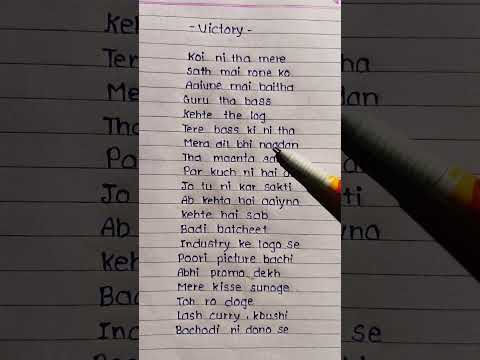 - Victory -
Koi ni tha mere
Sath mai rone ko
Aaiyne mai baitha
Guru tha bass
Kehte the log
Tere bass ki ni tha
Mera dil bhi naadan
Tha maanta
Par kuch ni hai
Jo tu ni kar sakti
Ab kehta hai aaiyna
Kehte hai sab
Badi batcheet
Industry ke logo se
Poori picture bachi
Abhi promo dekh
Mere kisse sunoge
Toh ro doge
Lash curry, khushi
Bachodi ni dono se